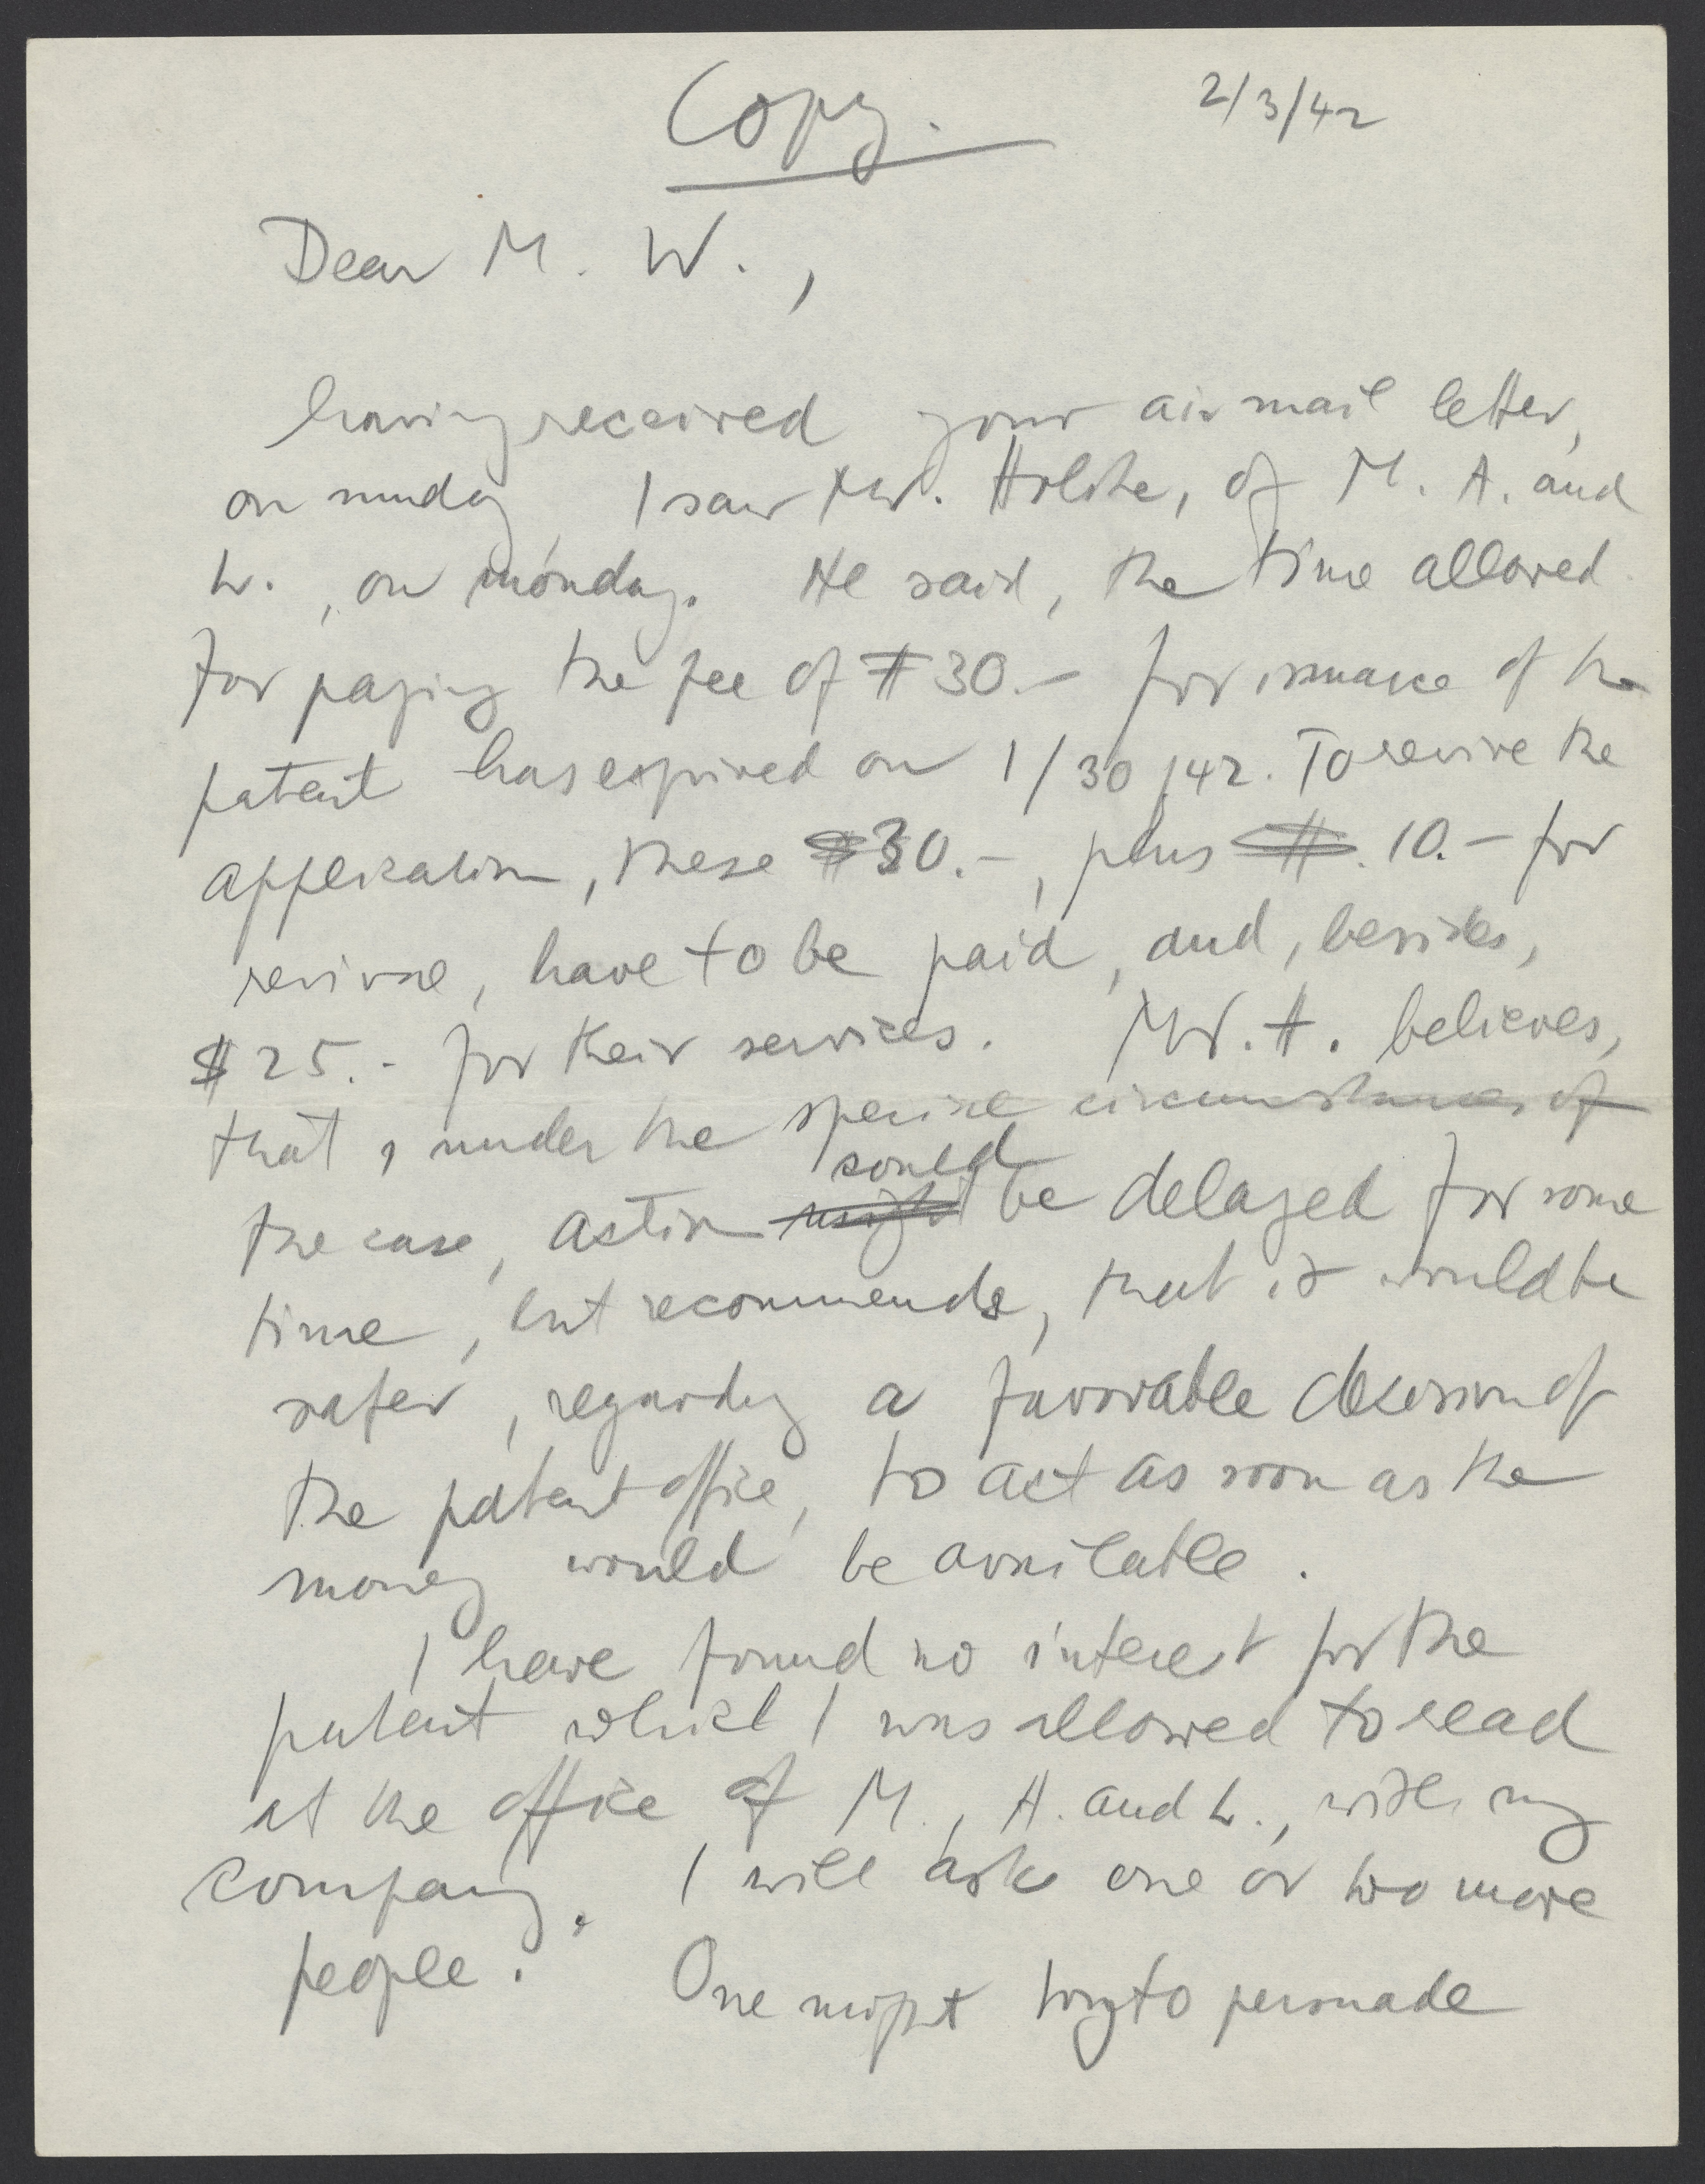 Copy.
2/3/42
Dear M. W.,
having received your air mail letter,
on sunday I saw Mr. Holste, of M. A. and
L., on monday. He said, the time allowed
for paying the fee of $30.- for issuance of the
patent has expired on 1/30/42. To revive the
application, these $30.-, plus $. 10.- for
revival, have to be paid, and, besides,
$25.- for their services. Mr. H. believes,
that, under the special circumstances of
the case, action might could be delayed for some
time, but recommends, that it would be
safer, regarding a favorable decision of
the patent office, to act as soon as the
money would be available.
I have found no interest for the
patent which I was allowed to read
at the office of M., A. and L., with my
company. I will ask one or two more
people. One might try to persuade